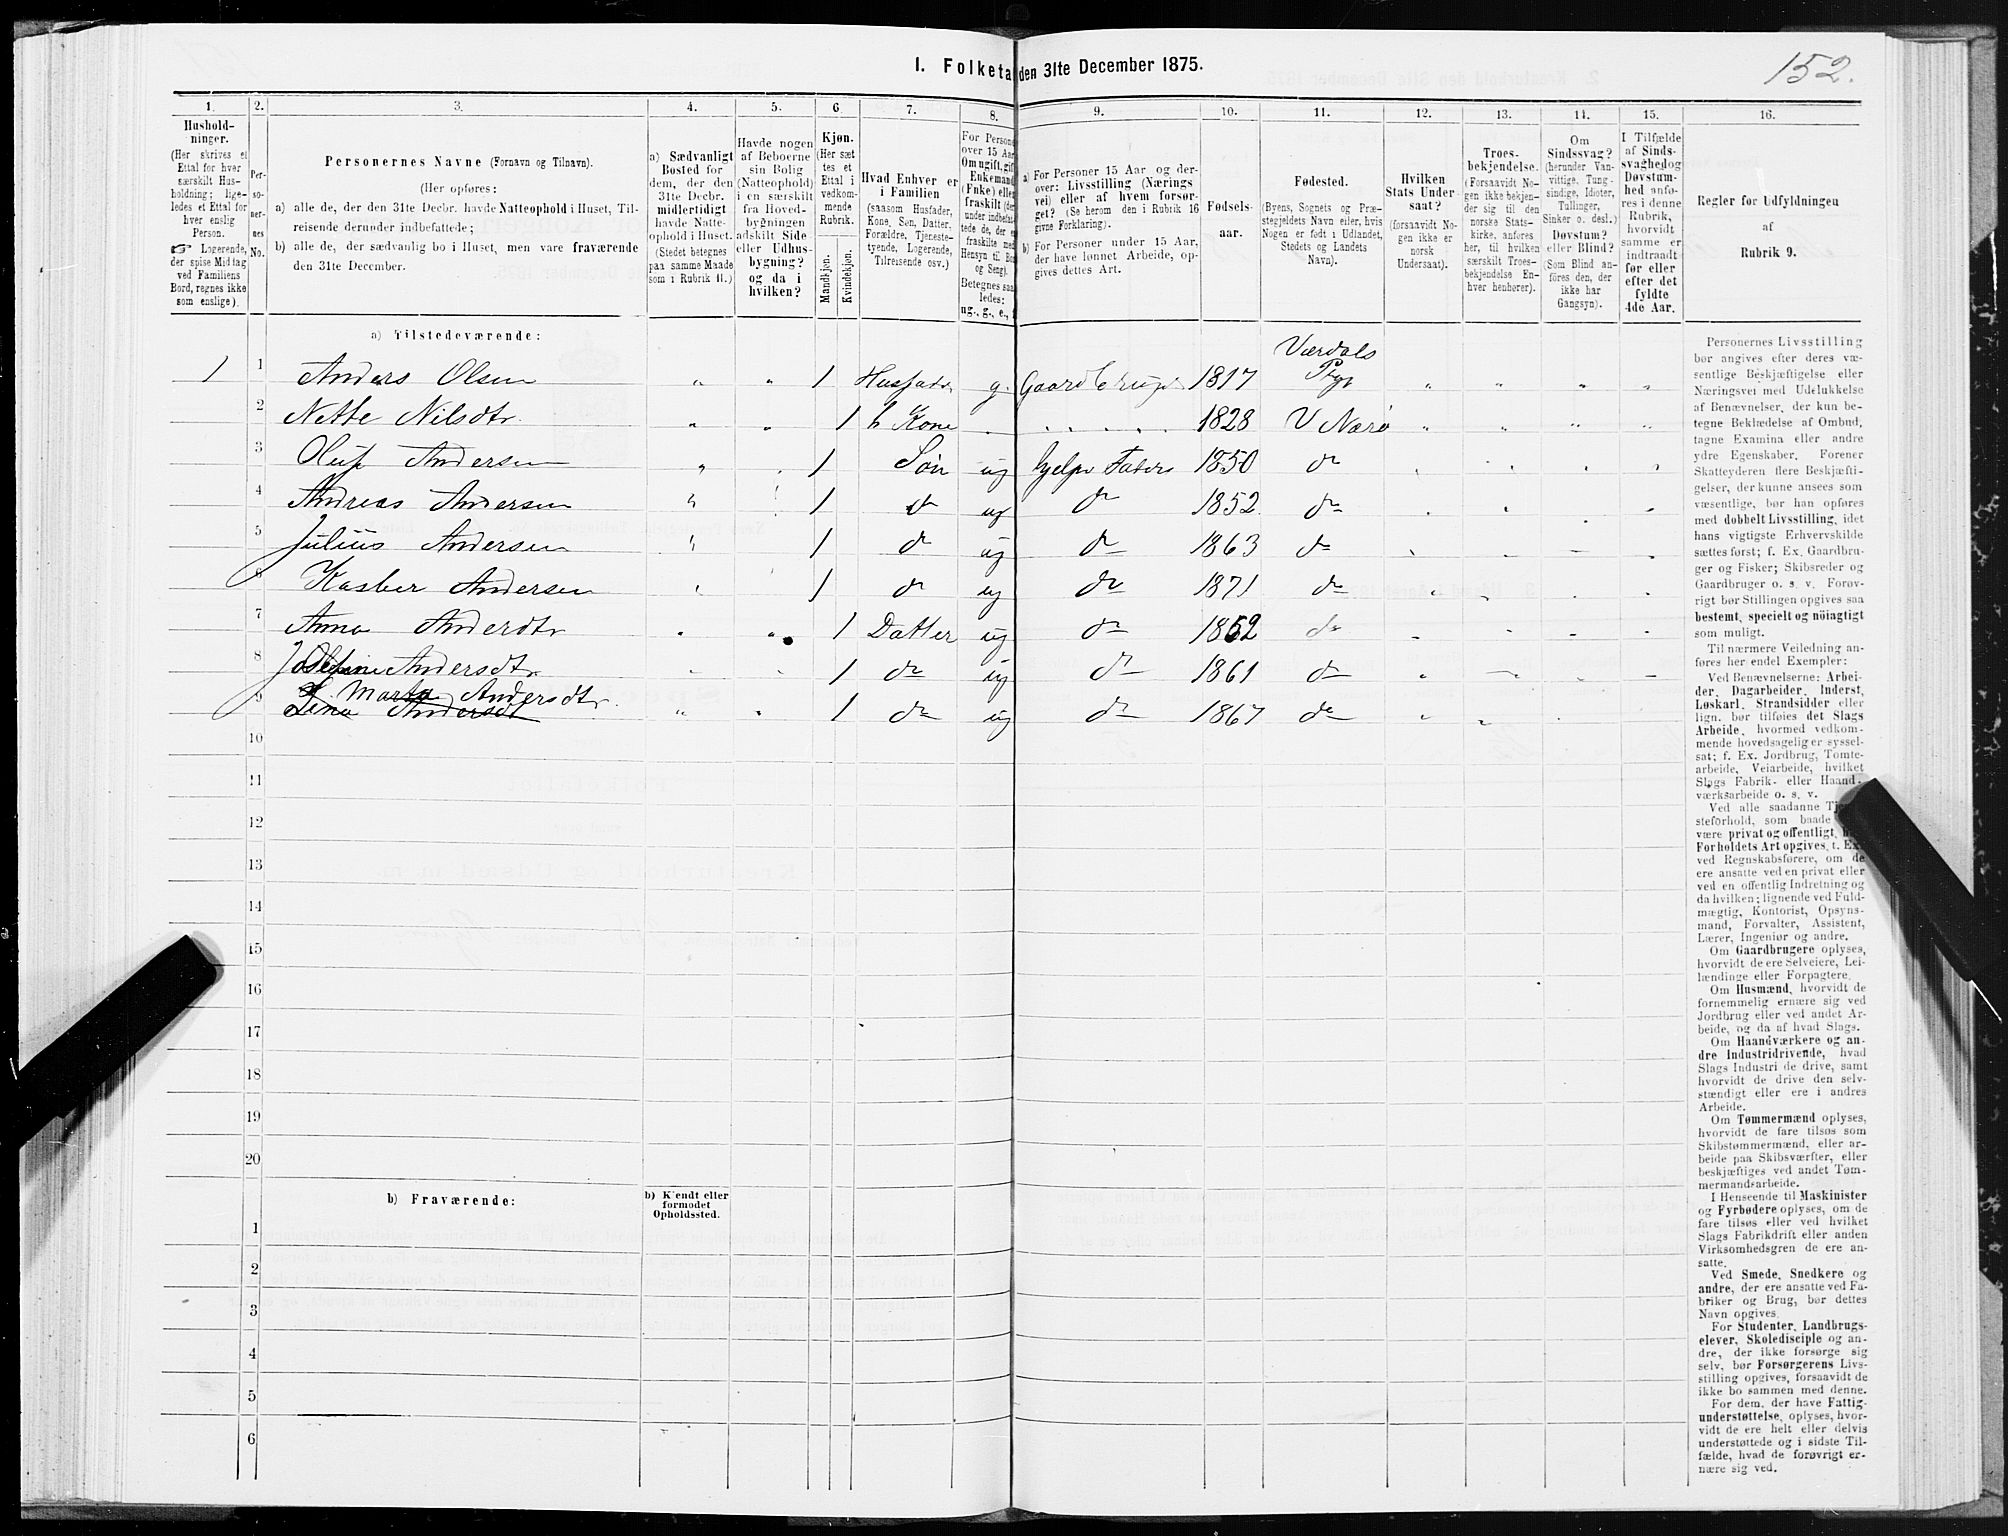 152.
I. Folketal den 31te December 1875.
1. 2. 3. 4. 5. 6. 7. 8. 9. 10. 11. 12. 13. 14. 15. 16.
Husholdninger.
(Her skrives et Ettal for hver særskilt Husholdning; ligeledes et Ettal for hver enslig Person.
☞ Logerende, der spise Middag ved Familiens Bord, regnes ikke som enslige).
Personernes No.
Personernes Navne (Fornavn og Tilnavn).
(Her opføres:
a) alle de, der den 31te Decbr. havde Natteophold i Huset, Tilreisende derunder indbefattede;
b) alle de, der sædvanlig bo i Huset, men vare fraværende den 31te December.
a) Sædvanligt Bosted for dem, der den 31te Decbr. midlertidigt havde Natteophold i Huset. (Stedet betegnes paa samme Maade som i Rubrik 11.)
Havde nogen af Beboerne sin Bolig (Natteophold) i en særskilt fra Hovedbygningen adskilt Side- eller Udhusbygning? og da i hvilken?
Kjøn. (Her sættes et Ettal i vedkommende Rubrik.
Mandkjøn. Kvindekjøn.
Hvad Enhver er i Familien
(saasom Husfader, Kone, Søn, Datter, Forældre, Tjenestetyende, Logerende, Tilreisende osv.)
For Person over 15 Aar Om ugift, gift Enkemand (Fnke) eller fraskilt
a) For Personer 15 Aar og derover: Livsstilling (Næringsvei) eller af hvem forsørget? (Se herom den i Rubrik 16 givne Forklaring).
b) For Personer under 15 Aar, der have lønnet Arbeide, opgives dettes Art.
Fødselsaar.
Fødested.
(Byens, Sognets og Præstegjeldets Navn eller, hvis Nogen er født i Udlandet, Stedets og Landets Navn).
Hvilken Stats Undersaat?
(forsaavidt Nogen ikke er norsk Undersaat).
Troesbekjendelse.
(Forsaavidt Nogen ikke bekjender sig til den norske Statskirke, anføres her, til hvilken særskilt Troesbekjendelse Enhver henhører).
Om Sindssvag? (herunder Vanvittige, Tungsindige, Idioter, Tullinger, Sinker o. desl.) Døvstum? eller Blind? (Som Blind anføres den, der ikke har Gangsyn).
I Tilfælde af Sindssvaghed og Døvstumhed anføres i denne Rubrik, hvorvidt samme er indtraadt før eller efter det fyldte 4de Aar.
Regler for Udfyldningen af Rubrik 9.
a) Tilstedeværende:
1 1 Anders Olsen " " 1 Husfader g. Gaardbruger 1817 Værdals Prgj " " " "
2 Nette Nilsdtr. " " 1 h Kone 1828 V Nærø " " " "
3 Oluf Andersen " 1 Søn ug hjelper Faderen 1850 do
4 Andreas Andersen " 1 do ug do 1852 do
5 Julius Andersen " 1 do ug do 1863 do
6 Kasber Andersen " 1 do ug do 1871 do
7 Anna Andersdtr " 1 Datter ug do 1852 do
8 Josefine Andersdtr. 1 do ug do 1861 do
Marta Andersdtr.
9 Lina Andersdt " " 1 do ug do 1867 do
10
11
12
13
14
15
16
17
18
19
20
b) Fraværende:
b) Kjendt eller formodet Opholdssted.
1
2
3
4
5
6
Personernes Livsstilling
bør angives efter deres væ-
sentlige Beskjæftigelse eller
Næringsvei med Udelukkelse
af Benævnelser, der kun be-
tegne Beklædelse af Ombud,
tagne Examina eller andre
ydre Egenskaber. Forener
Skatteyderen flere Beskjæfti-
gelser, der kunne ansees som
væsentlige, bør han opføres
med dobbelt Livsstilling, idet
hans vigtigste Erhvervskilde
sættes først; f. Ex. Gaardbru-
ger og Fisker; Skibsreder og
Gaardbruger o. s. v. Forøv-
rigt bør Stillingen opgives saa
bestemt, specielt og nøiagtigt
som muligt.
Til nærmere Veiledning an-
føres her endel Exempler:
Ved Benævnelserne: Arbei-
der, Dagarbeider, Inderst,
Løskarl, Strandsidder eller
lign. bør tilføies det Slags
Arbeide, hvormed vedkom-
mende hovedsagelig er syssel-
sat; f. Ex. Jordbrug, Tomte-
arbeide, Veiarbeide, hvilket
Slags Fabrik- eller Haand-
værksarbeide o. s. v.
Ved alle saadanne Tje-
steforhold, som baade
være privat og offentlig,
Forholdets Art opgives, t. Ex.
ved Regnskabsførere, om de
ere ansatte ved en privat eller
ved en offentlig Indretning og
da hvilken; lignende ved Fuld-
mægtig, Kontorist, Opsyns-
mand, Forvalter, Assistent,
Lærer, Ingeniør og andre.
Om Gaardbrugere oplyses,
hvorvidt de ere Selveiere, Lei-
lændinge eller Forpagtere.
Om Husmænd, hvorvidt de
fornemmelig ernære sig ved
Jordbrug eller ved andet Ar-
beide, og da af hvad Slags.
Om Haandværkere og an-
dre Industridrivende, hvad
Slags Industri de drive, samt
hvorvidt de drive den selv-
stændigt eller ere i andres
Arbeide.
Om Tømmermænd oplyses,
hvorvidt de fare tilsøs som
Skibstømmermænd, eller ar-
beide paa Skibsværfter, eller
beskjæftiges ved andet Tøm-
mermandsarbeide.
I Henseende til Maskinister
og Fyrbødere oplyses, om de
fare tilsøs eller ved hvilket
Slags Fabrikdrift eller anden
Virksomhedsgren de ere an-
satte.
Ved Smede, Snedkere og
andre, der ere ansatte ved Fa-
briker og Brug, bør dettes
Navn opgives
For Studenter, Landbrugs-
elever, Skoledisciple og an-
dre, der ikke forsørge sig
selv, bør Forsørgerens Livs-
stilling opgives, forsaavidt de
ikke bo sammen med denne.
For dem, der have Fattig-
understøttelse, oplyses, hvor-
vidt de ere helt eller delvis
understøttede og i sidste Til-
fælde, hvad de forøvrigt er-
nære sig ved.